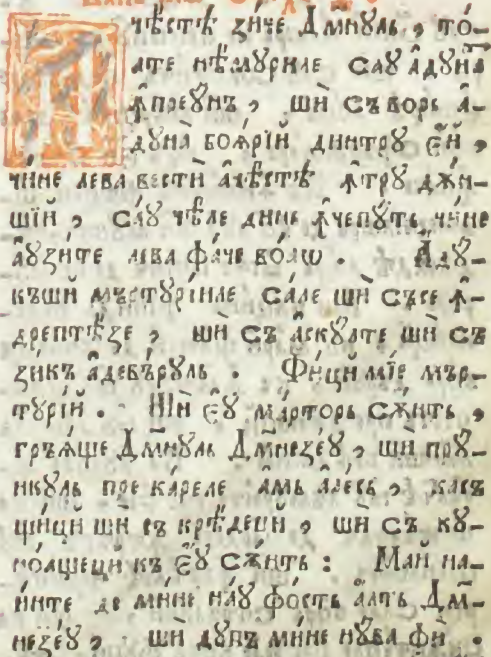 Ачѣстѣ зи́че Дм҃нꙋль , то́-
ате нѣ́мꙋриле саꙋ а҆дꙋна̀
ꙟпреꙋнъ , шѝ съворь а҆-
дꙋна̀ боѧ́рїй динтрꙋ є҆й ,
чи́не лева вестѝ а҆чѣстѣ ꙟтрꙋ джи́-
шїй , са́ꙋ чѣле дине ꙟчепꙋ́ть чи́не
а҆ꙋзи́те лева фа́че во́аѡ . А҆дꙋ-
къшѝ мъртꙋрїиле са́ле шѝ съсе ꙟ-
дрептѣ́зе , шѝ съ а҆скꙋ́лте шѝ съ
зи́къ а҆девъ́рꙋль . Фи́ций мїе мър-
тꙋрїй . Шѝ є҆́ꙋ ма́рторь сѫ́нть ,
грѣѧ́ще Дм҃нꙋль Дм҃незе́ꙋ , шѝ прꙋ́-
нкꙋль пре ка́реле а҆мь але́сь , кась
щи́ций шѝ съ крѣ́деций , шѝ съ кꙋ-
ноа́щеций къ є҆́ꙋ сѫ́нть : Май на-
и́нте де ми́не наꙋ фо́сть а҆лть Дм҃-
незе́ꙋ , шѝ дꙋпъ ми́не нꙋва фѝ .